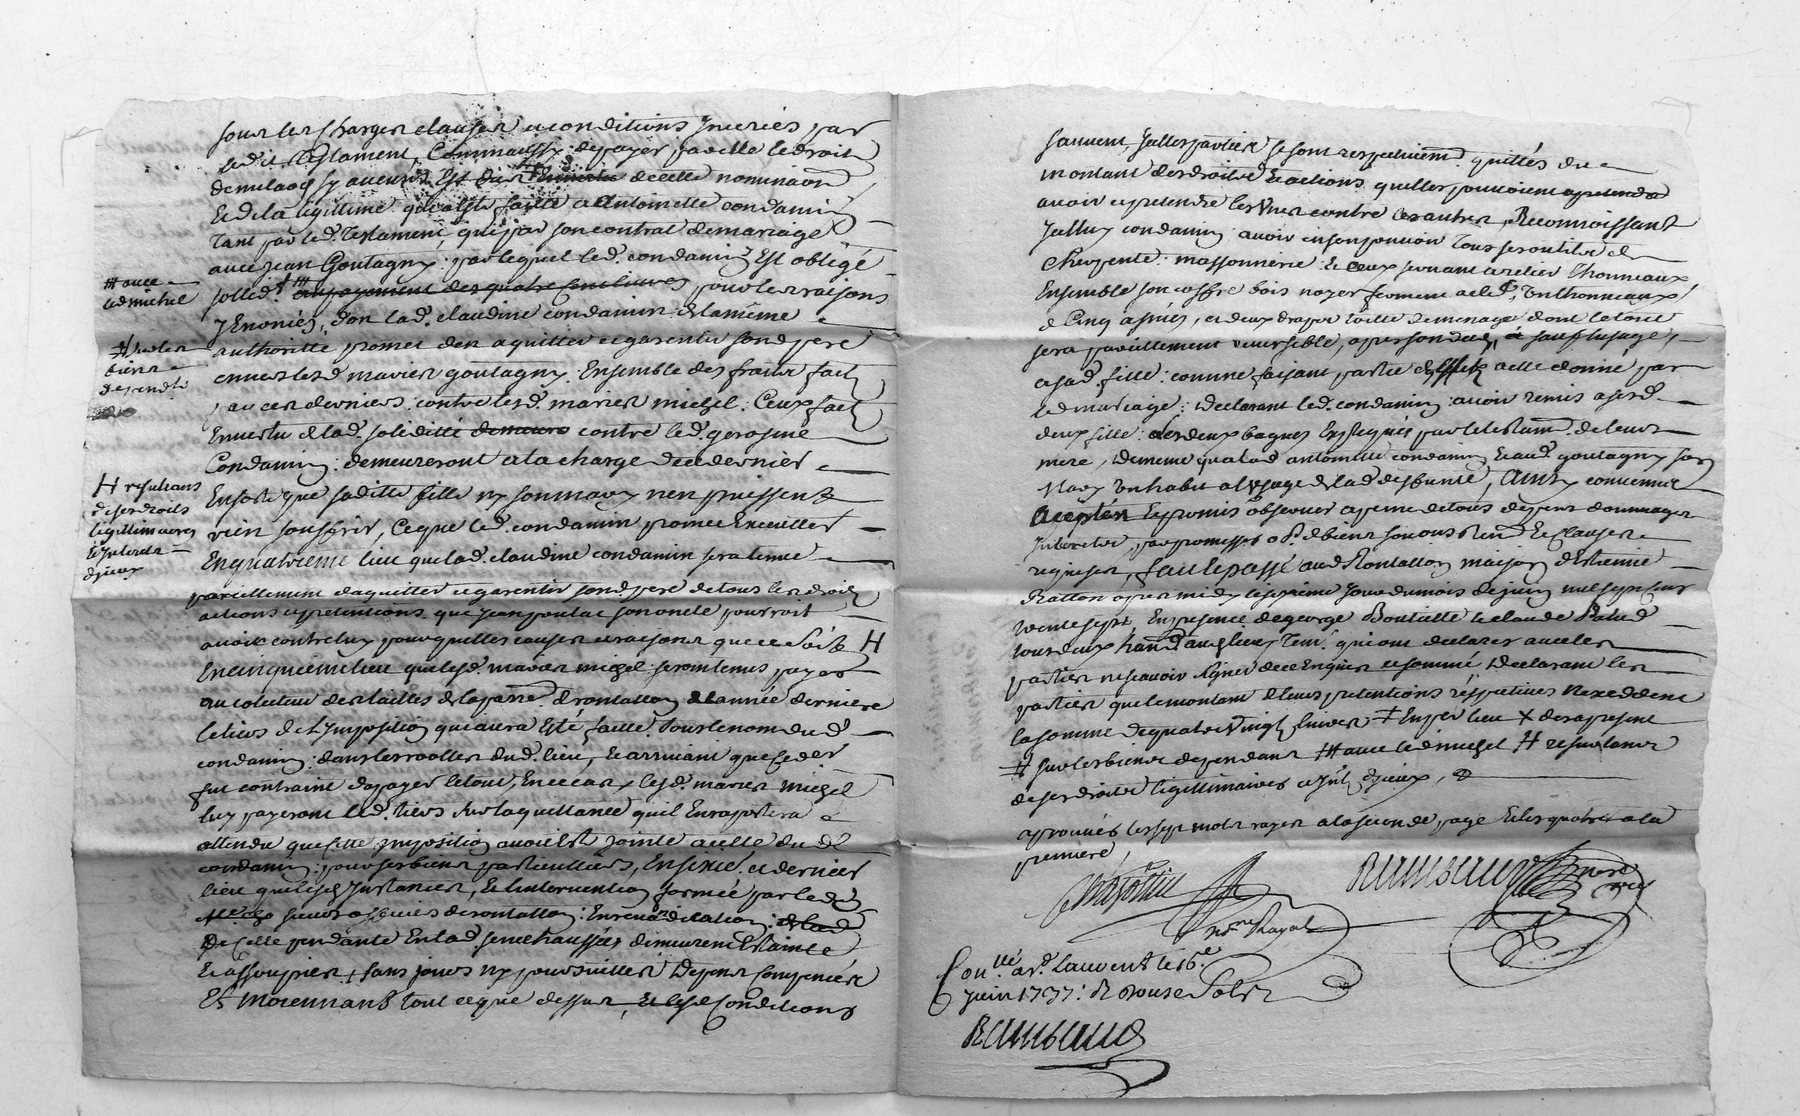 sous les charges clauses et conditions inserées par
ledit testament, comm'aussy de payer pour elle le droit
de milaog sy aucun est deub de celle nomination
et de la legittime qui a esté faitte a Antoinette condamin
tant par led. testament, que par son contrat de mariage
avec jean Goutagny: par lequel led. condamin est obligé
#avec
led michel
sollid.t au payement des quatre cent livres pour les raisons
y enoncés, dont lad. claudine condamin de la même
# sur les
biens
dependts
authoritté promet den aquitter et garentir sond pere
envers lesd mariés goutagny. Ensemble des fraix faits
par ces derniers contre lesd. mariés michel: Ceux faits
En vertu de lad. soliditté demeure contre led. gerosme
Condamin: demeureront a la charge de ce dernier
H resultans
de ses droits
legittimaires
et interets
d'yceux
En sorte que saditte fille ny son mary n'en puissent
rien souffrir, Ce que led. condamin promet Executter
En quatrieme lieu que lad. claudine condamin sera tenue
pareillement daquitter et garentir sond pere de tous les droits
actions et pretentions que jean poulat son oncle pourroit
avoir contre luy pour quelles causes et raisons que ce soit H
En cinquieme lieu que lesd. mariés michel seront tenus payer
au colecteur des tailles de la parre. de rontallon de l'année derniere
le tiers de l'Imposition qui aura Esté faitte sous le nom dud
condamin: dans les roolles dud. lieu, et arrivant que se der
fut contraint de payer le tout, En ce cas lesd. mariés michel
luy payeront led. tiers sur la quittance qu'il En raportera
attendu que cette Imposition avoit esté jointe a celle dud
condamin: pour ses biens particulliers, En sixie. et dernier
lieu que lesd. Instances, et l'intervention formée par led
sieurs de rontallon: En revendication
De Celle pendante En lad senechaussée, demeurent Estainte
Et assoupies, sans jours ny poursuittes: Depens compencés
Et moiennant tout ce que dessus, et lesd conditions
suivent, Icelles parties se sont respectivemt. quittés du
montant des droits et actions qu'elles pouvoient
avoir et pretendre les unes contre les autres, Reconnoissant
Icelluy condamin avoir en son pouvoir tous ses outils de
charpente: massonnerie: et ceux servant a relier thonneaux
Ensemble son coffre bois noyer fermant a clef, un thonneaux
de Cinq asnées, et deux draps toille de menage dont le tout
sera pareillement reversible, apres son decés, et sauf l'usage,
a sad. fille: comme faisant partie des effets a elle donné par
led mariage: Declarant led. condamin avoir remis a sesd.
deux fille: les deux bagues Expliqués par le testamt. de leur
mere, De meme qua lad antoinette condamin et aud goutagny son
mary un habit a l'usage de lad. deffunte, Ainsy convenu
accepté Et promis observer a peine de tous depens dommages
Interets, par promesses obl. de biens soumis. renon. Et clauses
requises, fait et passé aud Rontallon maison d'Estienne
Ratton apres midy le septieme jour du mois de juin mil sept cent
trente sept, En presence de george Boutiette et claude Ratud
tous deux hants. aud lieu, temt. qui ont declarés avec les
parties ne scavoir signer de ce Enquis et sommé, Declarant les
parties que le montant de leurs pretentions respectives n'excedent
la somme de quatre vingt livres # En per. lieu X des apresent
# sur les biens dependans # avec led michel H resultans
de ses droits legittimaires et Intts. d'yceux,
aprouvés les sept mots rayés a la seconde page Et les quatre a la
premiere
nore. Royal
Conlle. a st. Laurent le 16.e
juin 1737: R douze sols
Rambaud